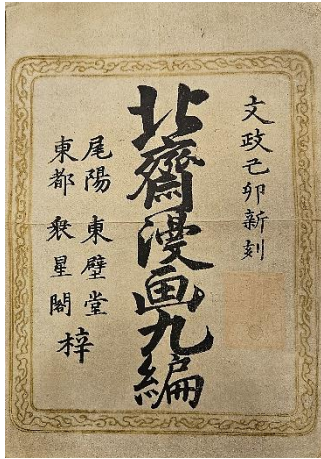 文政己卯新刻
北齋漫画九編
尾陽 東壁堂
東都 衆星閣 梓